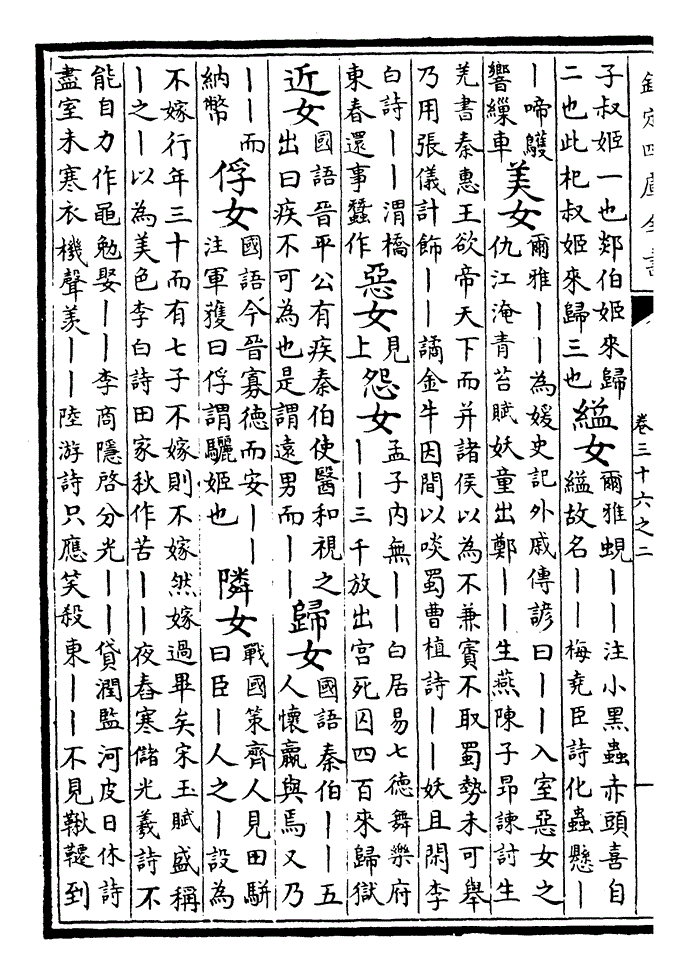 欽定四庫全書
卷三十六之二
子叔姬一也郯伯姬來歸
二也此杞叔姬來歸三也
縊女
爾雅蜆丨丨注小黑蟲赤頭喜自
縊故名丨丨梅堯臣詩化蟲懸丨
丨啼鸌
響繅車
美女
爾雅丨丨為媛史記外戚傳諺曰丨丨入室惡女之
仇江淹青苔賦妖童出鄭丨丨生燕陳子昂諫討生
羌書秦惠王欲帝天下而并諸侯以為不兼賨不取蜀勢未可舉
乃用張儀計飾丨丨譎金牛因間以啖蜀曹植詩丨丨妖且閑李
白詩丨丨渭橋
東春還事蠶作
惡女
見
上
怨女
孟子內無丨丨白居易七德舞樂府
丨丨三千放出宮死囚四百來歸獄
近女
國語晉平公有疾秦伯使醫和視之
出曰疾不可為也是謂遠男而丨丨
歸女
國語秦伯丨丨五
人懷嬴與焉又乃
丨丨而
納幣
俘女
國語今晉寡德而安丨丨
注軍獲曰俘謂驪姬也
隣女
戰國策齊人見田駢
曰臣丨人之丨設為
不嫁行年三十而有七子不嫁則不嫁然嫁過畢矣宋玉賦盛稱
丨之丨以為美色李白詩田家秋作苦丨丨夜舂寒儲光羲詩不
能自力作黽勉娶丨丨李商隱啓分光丨丨貸潤監河皮日休詩
盡室未寒衣機聲羨丨丨陸游詩只應笑殺東丨丨不見鞦韆到